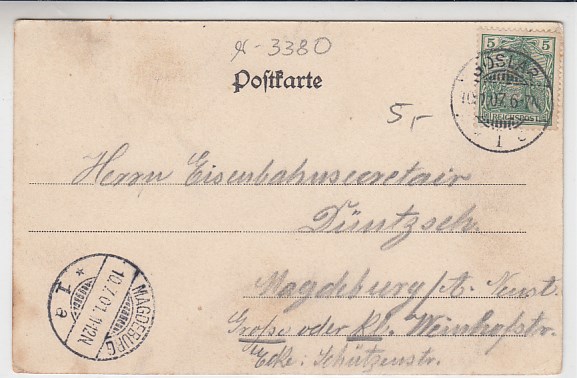 x-3380
Postkarte
5 5
REICHSPOST
GOSLAR
1 c
5,-
Herrn Eisenbahnsecretair
Düntzsch.
Magdeburg/A. Neust.
Große oder Kl. Weinhofstr.
Ecke: Schützenstr.
MAGDEBURG
10.7.01. 1-12N
* 1 a